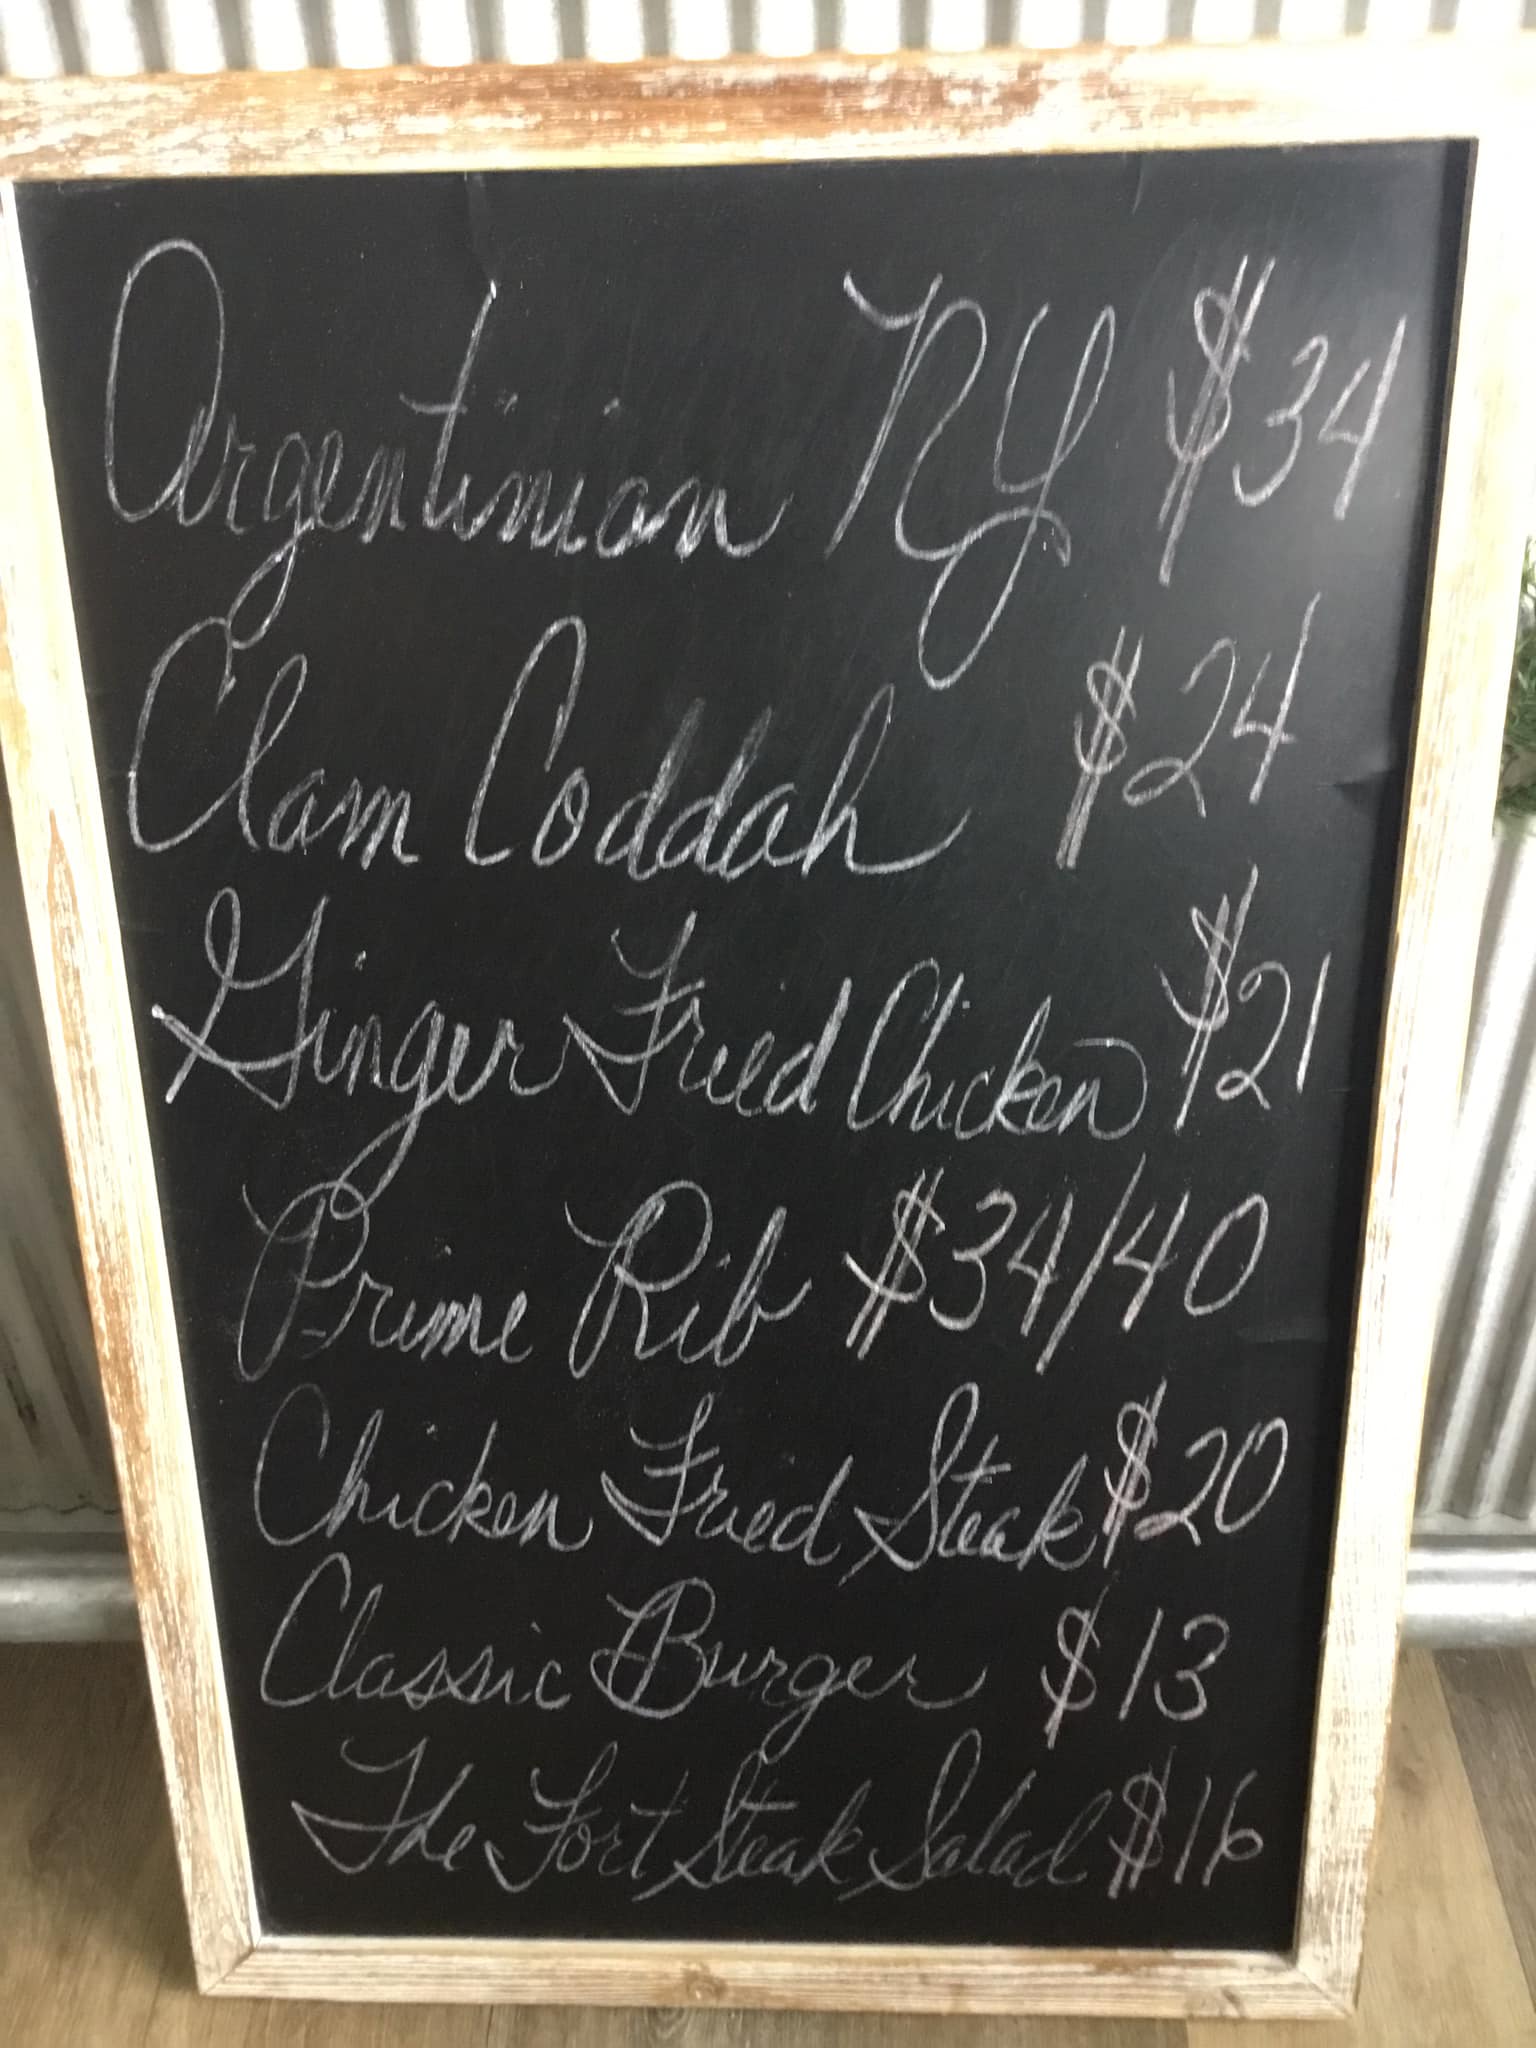 Argentinian NY $34
Clam Coddah $24
Ginger Fried Chicken $21
Prime Rib $34/40
Chicken Fried Steak $20
Classic Burger $13
The Fort Steak Salad $16